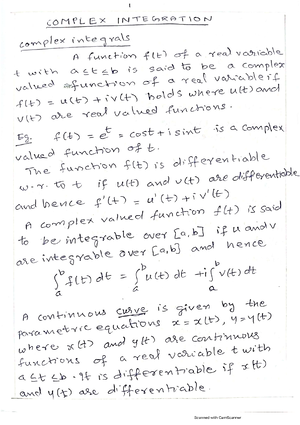 1
COMPLEX INTEGRATION
complex integrals
A function f(t) of a real variable
t with a≤t≤b is said to be a complex
valued function of a real variable if
f(t) = u(t) + iv(t) holds where u(t) and
v(t) are real valued functions.
Eg. f(t) = e^t = cost + i sint is a complex
valued function of t.
The function f(t) is differentiable
w.r. to t if u(t) and v(t) are differentiable
and hence f'(t) = u'(t) + iv'(t)
A complex valued function f(t) is said
to be integrable over [a,b] if u and v
are integrable over [a,b] and hence
∫_a^b f(t) dt = ∫_a^b u(t) dt + i∫_a^b v(t) dt
A continuous curve is given by the
parametric equations x = x(t), y = y(t)
where x(t) and y(t) are continuous
functions of a real variable t with
a≤t≤b. It is differentiable if x(t)
and y(t) are differentiable.
Scanned with CamScanner